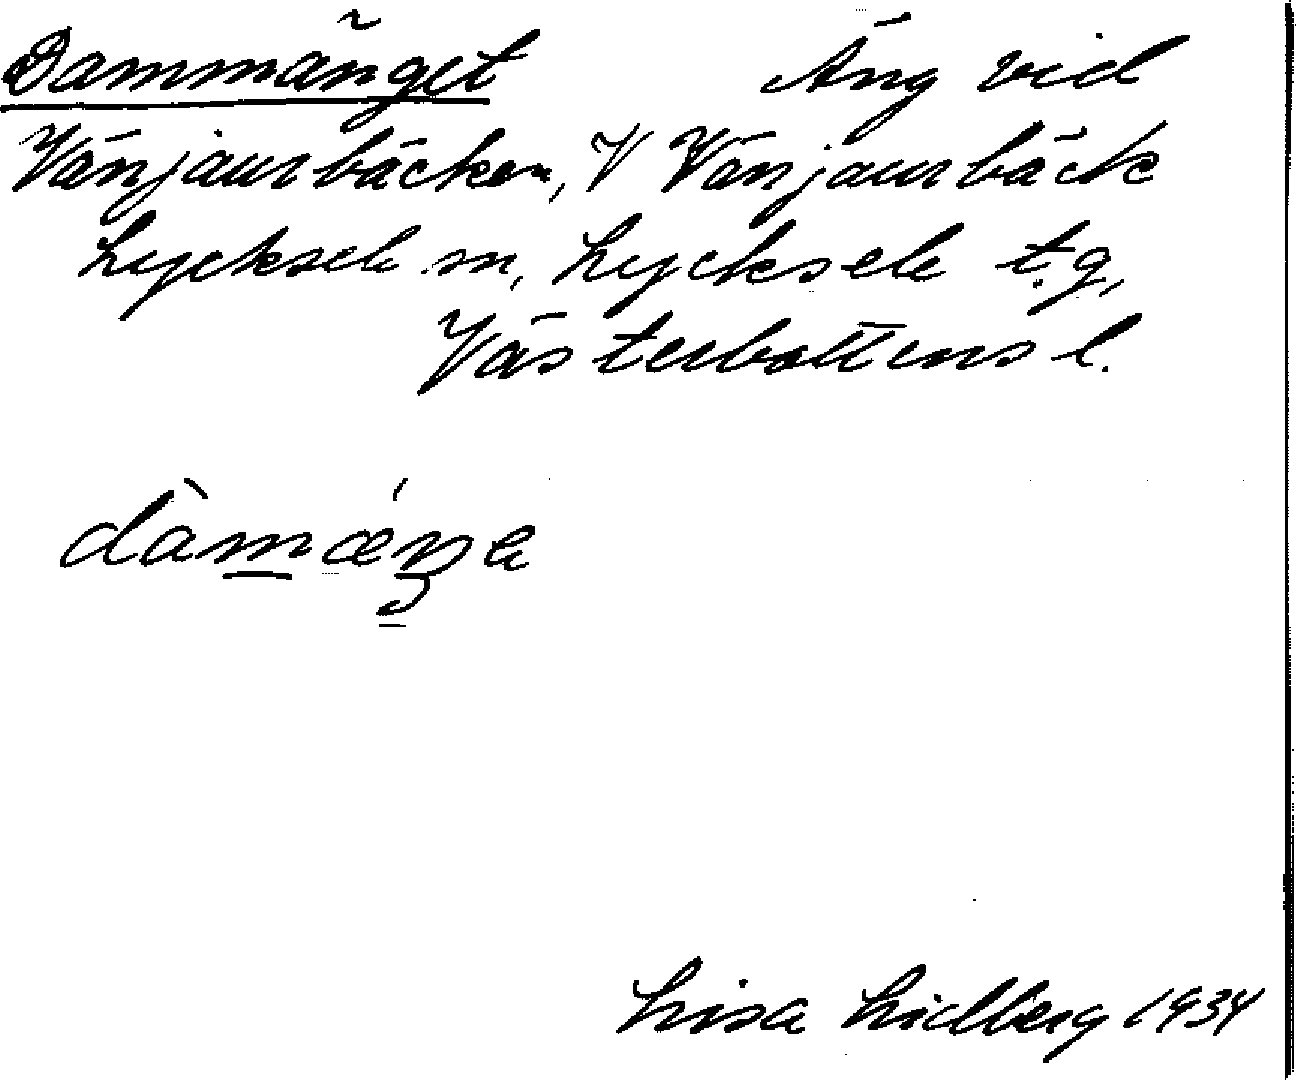 Dammänget Äng vid
Vänjaurbäcken, V Vänjaurbäck
Lycksele sn, Lycksele t.g,
Västerbottens l.
dàmǽŋe
Lisa Lidberg 1934